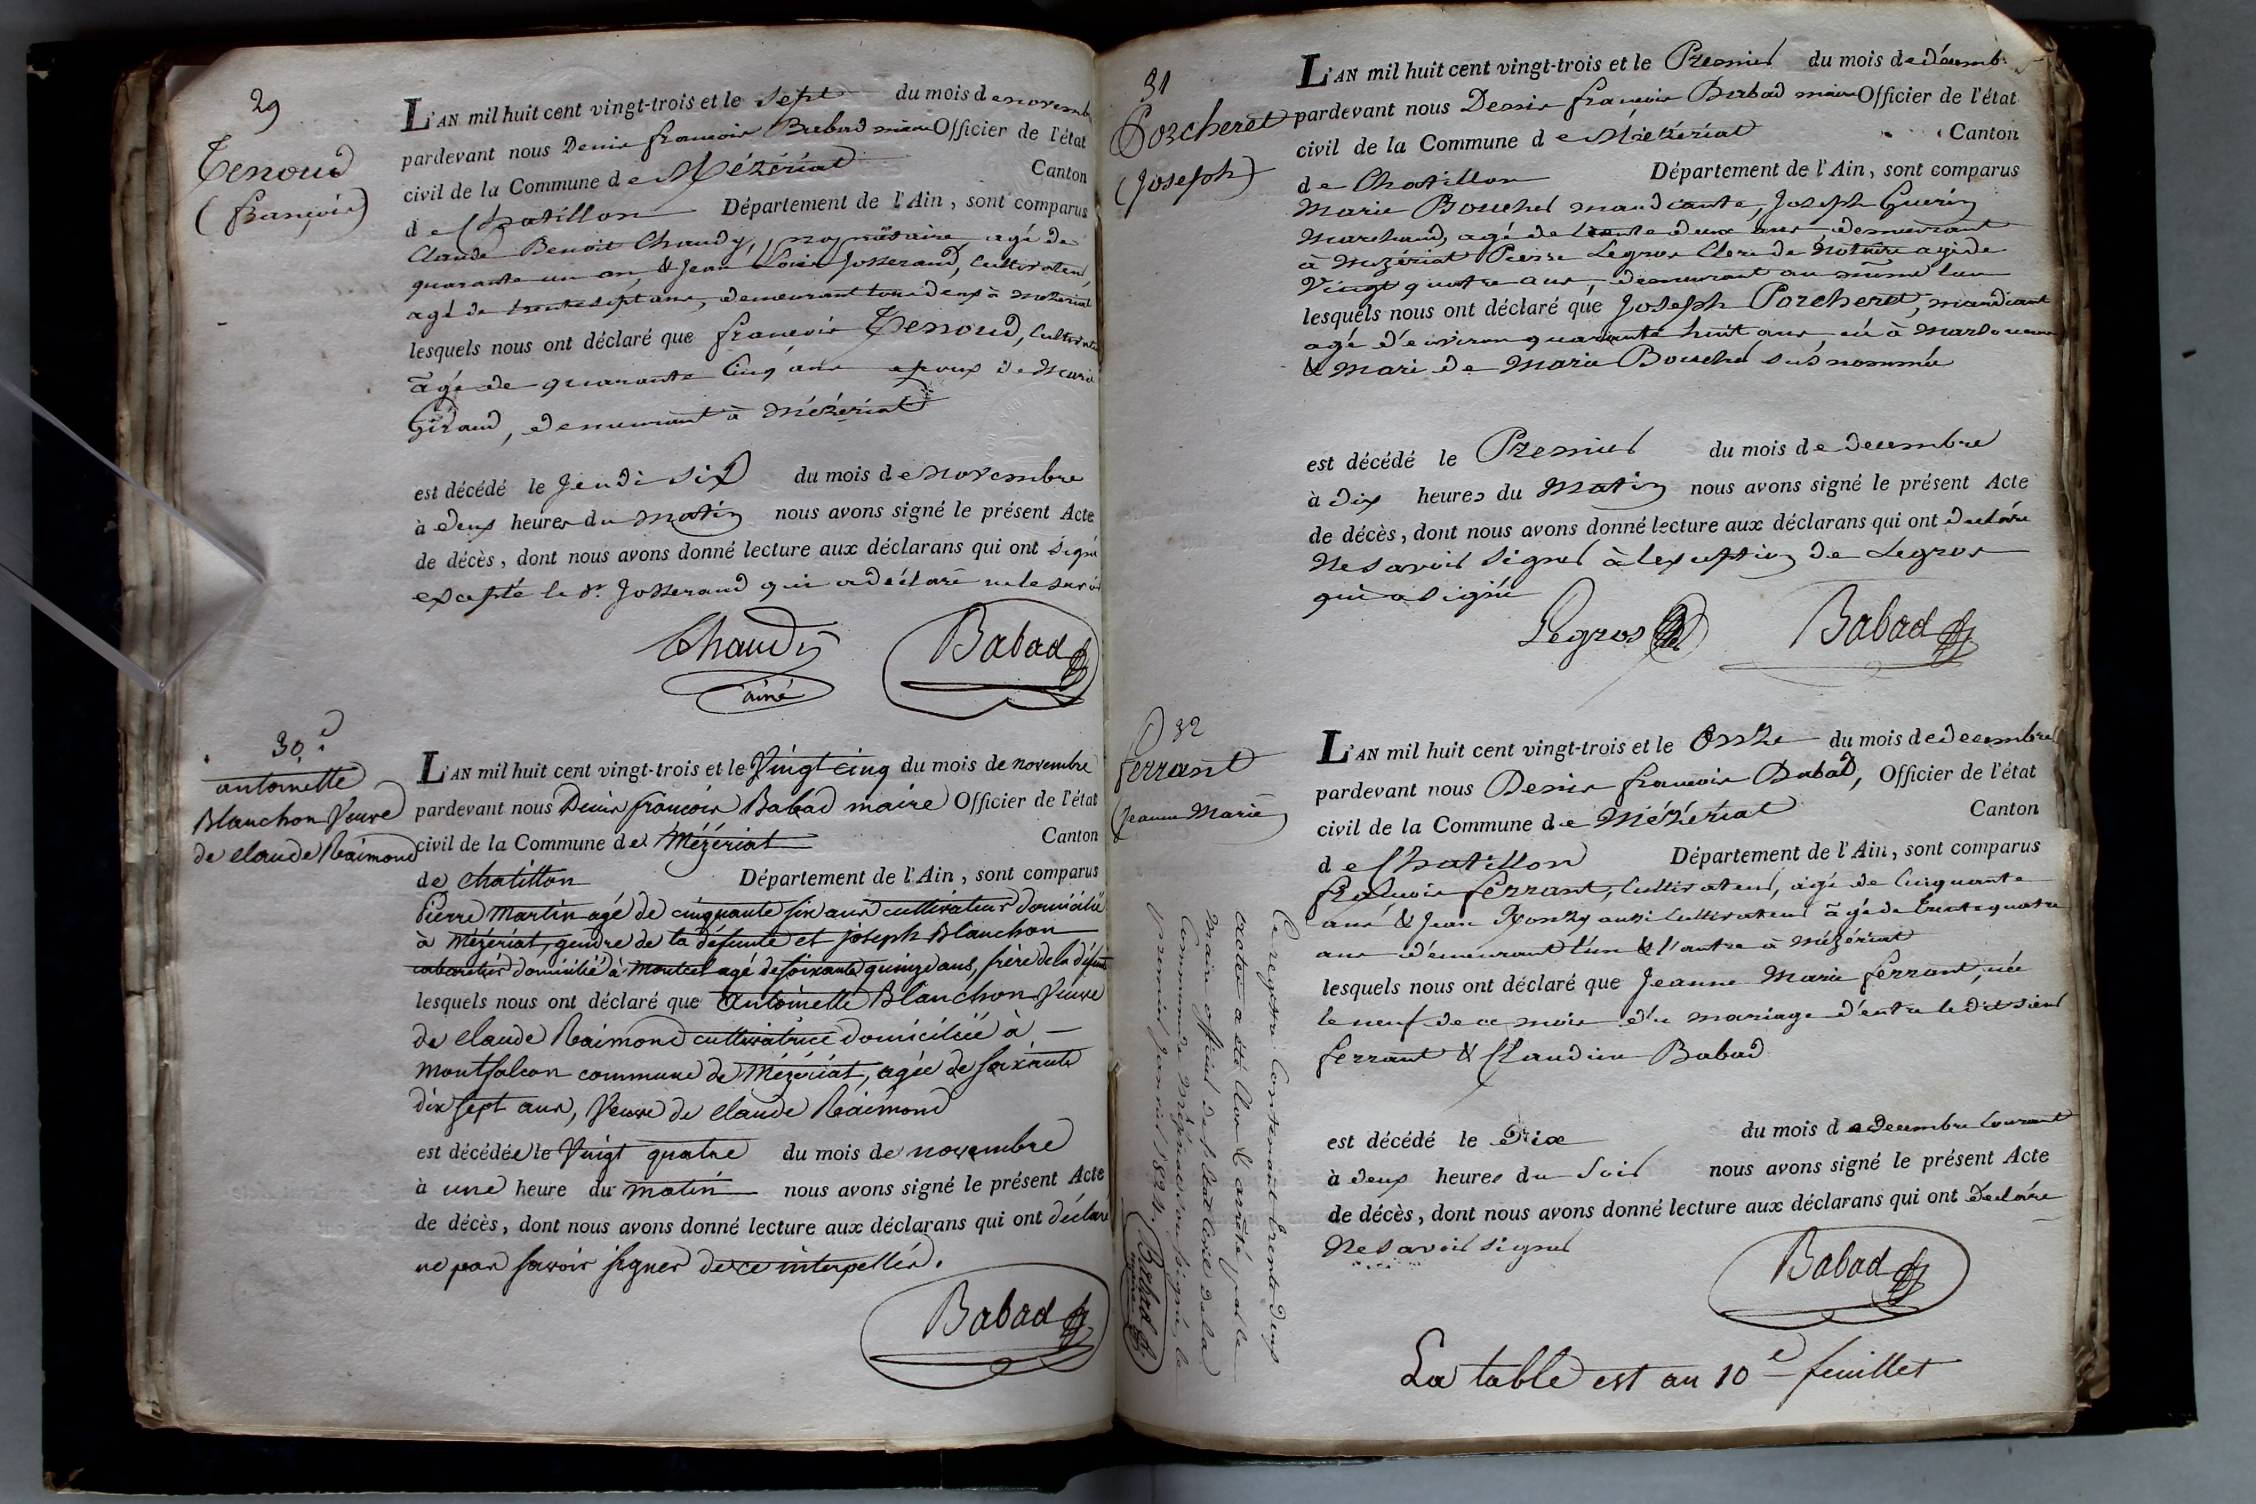 29
Tenoud
(françois)
L'AN mil huit cent vingt-trois et le sept du mois de novemb
pardevant nous Denis françois Babad maire Officier de l'état
civil de la Commune de Mézériat Canton
de Chatillon Département de l'Ain, sont comparus
Claude Benoit Chaudy, propriétaire agé de
quarante un an, & Jean Louis Josserand, Cultivateur
agé de trente sept ans, demeurant tous deux à Mézériat
lesquels nous ont déclaré que françois Tenoud, Cultivate
âgé de quarante Cinq ans epoux de Marie
Giraud, demeurant à Mézériat
est décédé le Jeudi six du mois de novembre
à deux heures du matin nous avons signé le présent Acte
de décès, dont nous avons donné lecture aux déclarans qui ont signé
excepté le Sr. Josserand qui a déclaré ne le savoir
Chaudy
ainé
Babad
30e
antoinette
Blanchon Veuve
de claude Raimond
L'AN mil huit cent vingt-trois et le Vingt cinq du mois de novembre
pardevant nous Denis françois Babad maire Officier de l'état
civil de la Commune de Mézériat Canton
de chatillon Département de l'Ain, sont comparus
Pierre Martin agé de cinquante six ans cultivateur domicilié
à Mézériat, gendre de la défunte et joseph Blanchon
cabaretier domicilié à Montcet agé de soixante quinze ans, frère de la défunte
lesquels nous ont déclaré que Antoinette Blanchon Veuve
de claude Raimond cultivatrice domiciliée à —
Montfalcon commune de Mézériat, agée de soixante
dix sept ans, Veuve de claude Raimond
est décédée le Vingt quatre du mois de novembre
à une heure du matin nous avons signé le présent Acte
de décès, dont nous avons donné lecture aux déclarans qui ont déclaré
ne pas savoir signer de ce interpellés.
Babad
31
Porcheret
(Joseph)
L'AN mil huit cent vingt-trois et le Premier du mois de décemb
pardevant nous Denis françois Babad maire Officier de l'état
civil de la Commune de Mézériat Canton
de Chatillon Département de l'Ain, sont comparus
Marie Bouchet mandiante, Joseph Guerin
Marchand, agé de trente deux ans, demeurant
à Mézériat Pierre Legros Clerc de Notaire agé de
Vingt quatre ans, demeurant au même lieu
lesquels nous ont déclaré que Joseph Porcheret, mandiant
agé d'environ quarante huit ans, né à
& mari de Marie Bouchet sus nommée
est décédé le Premier du mois de decembre
à dix heures du Matin nous avons signé le présent Acte
de décès, dont nous avons donné lecture aux déclarans qui ont declaré
Ne savoir signer à lexception de Legros
qui a signé
Legros
Babad
32
ferrant
(Jeanne Marie)
L'AN mil huit cent vingt-trois et le Onze du mois de decembre
pardevant nous Denis françois Babad, Officier de l'état
civil de la Commune de Mézériat Canton
de Chatillon Département de l'Ain, sont comparus
françois ferrant, Cultivateur, agé de Cinquante
ans & Jean aussi Cultivateur âgé de trente quatre
ans demeurant l'un & l'autre à Mézériat
lesquels nous ont déclaré que Jeanne Marie ferrant, née
le neuf de ce mois du mariage d'entre ledit sieur
ferrant & Claudine Babad
est décédé le Dix du mois de decembre Courant
à deux heures du Soir nous avons signé le présent Acte
de décès, dont nous avons donné lecture aux déclarans qui ont déclaré
Ne savoir signer
Babad
La table est au 10e feuillet
Ce registre Contenant trente deux
actes a été Clos & arrêté par le
maire officier de l'état Civil de la
Commune de Mézériat soussigné, le
premier Janvier 1824.
Babad